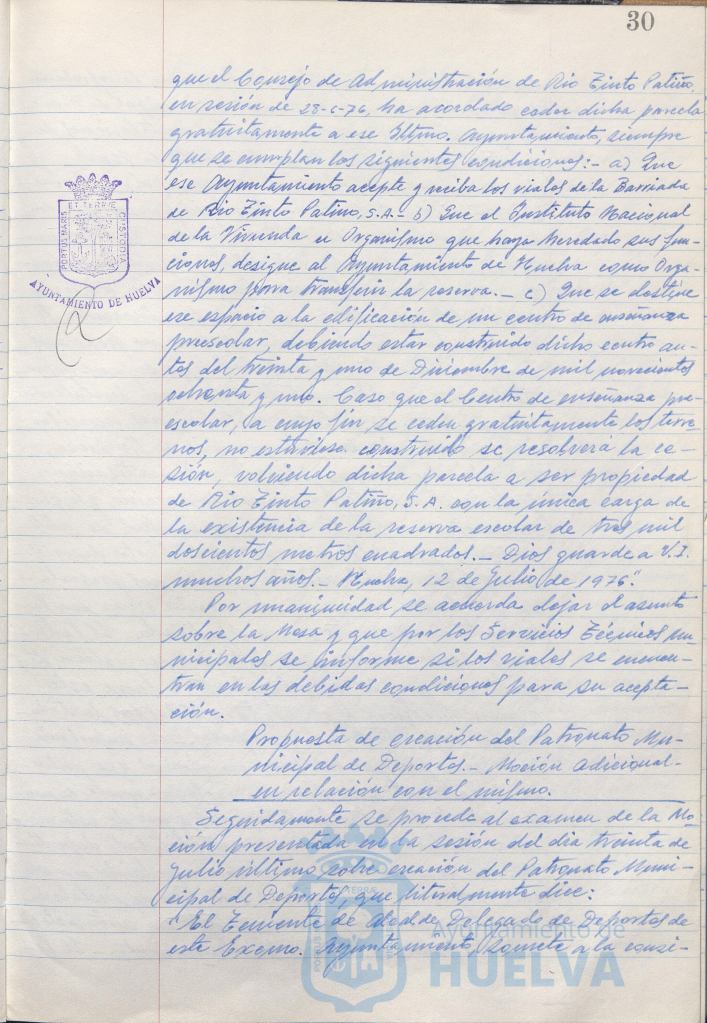 30
que el Consejo de Administración de Rio Tinto Patiño,
en sesión de 28-6-76, ha acordado ceder dicha parcela
gratuitamente a ese Iltmo. Ayuntamiento, siempre
que se cumplan las siguientes condiciones:- a) Que
ese Ayuntamiento acepte y reciba los viales de la Barriada
de Rio Tinto Patiño, S.A.- b) Que el Instituto Nacional
de la Vivienda u Organismo que haya heredado sus fun-
ciones, designe al Ayuntamiento de Huelva como Orga-
nismo para transferir la reserva.- c) Que se destine
ese espacio a la edificación de un centro de enseñanza
preescolar, debiendo estar construido dicho centro an-
tes del treinta y uno de Diciembre de mil novecientos
ochenta y uno. Caso que el Centro de enseñanza pre-
escolar, a cuyo fin se ceden gratuitamente los terre-
nos, no estuviese construido se resolverá la ce-
sión, volviendo dicha parcela a ser propiedad
de Rio Tinto Patiño, S.A. con la única carga de
la existencia de la reserva escolar de tres mil
doscientos metros cuadrados.- Dios guarde a V.I.
muchos años.- Huelva, 12 de Julio de 1976."
Por unanimidad se acuerda dejar el asunto
sobre la Mesa y que por los Servicios Técnicos mu-
nicipales se informe si los viales se encuen-
tran en las debidas condiciones para su acepta-
ción.
Propuesta de creación del Patronato Mu-
nicipal de Deportes.- Moción adicional-
en relación con el mismo.
Seguidamente se procede al examen de la Mo-
ción presentada en la sesión del dia treinta de
julio último sobre creación del Patronato Muni-
cipal de Deportes, que literalmente dice:
"El Teniente de Alcalde Delegado de Deportes de
este Excmo. Ayuntamiento, somete a la consi-
PORTUS MARIS ET TERRAE CUSTODIA
AYUNTAMIENTO DE HUELVA
Ayuntamiento de
HUELVA